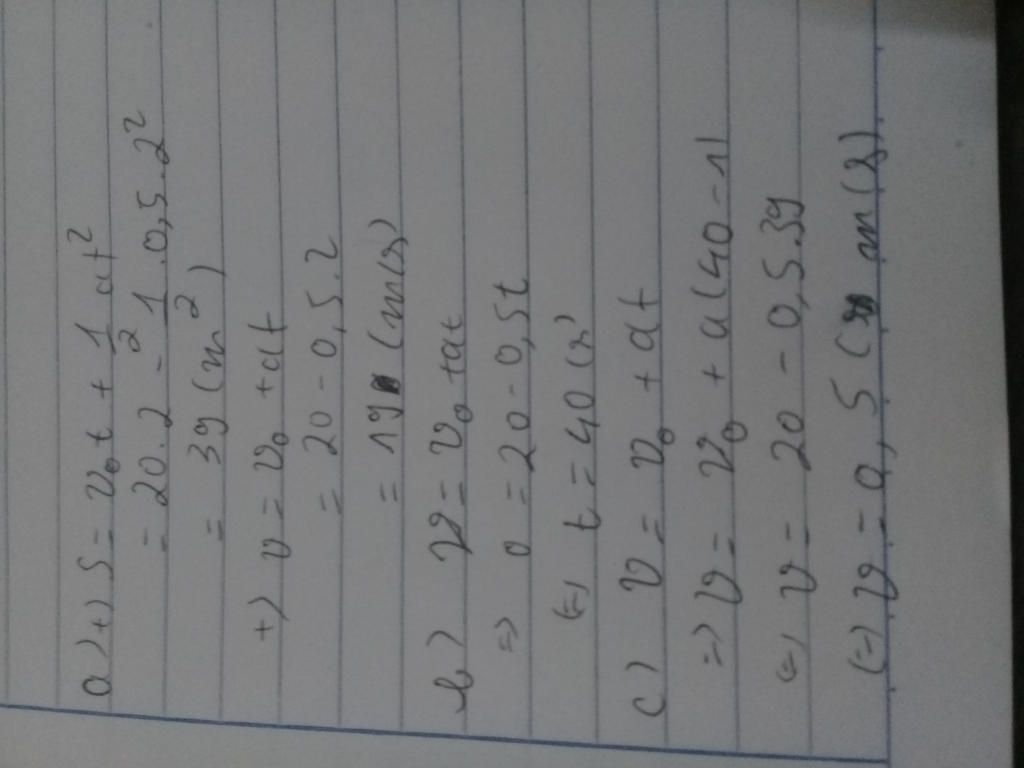 a) +) S = v₀t + 1/2 at²
= 20.2 - 1/2 .0,5.2²
= 39 (m²)
+) v = v₀ + at
= 20 - 0,5.2
= 19 (m/s)
b) v = v₀ + at
=> 0 = 20 - 0,5t
(=) t = 40 (s)
c) v = v₀ + at
=> v = v₀ + a(40-1)
(=) v = 20 - 0,5.39
(=) v = 0,5 (m/s).